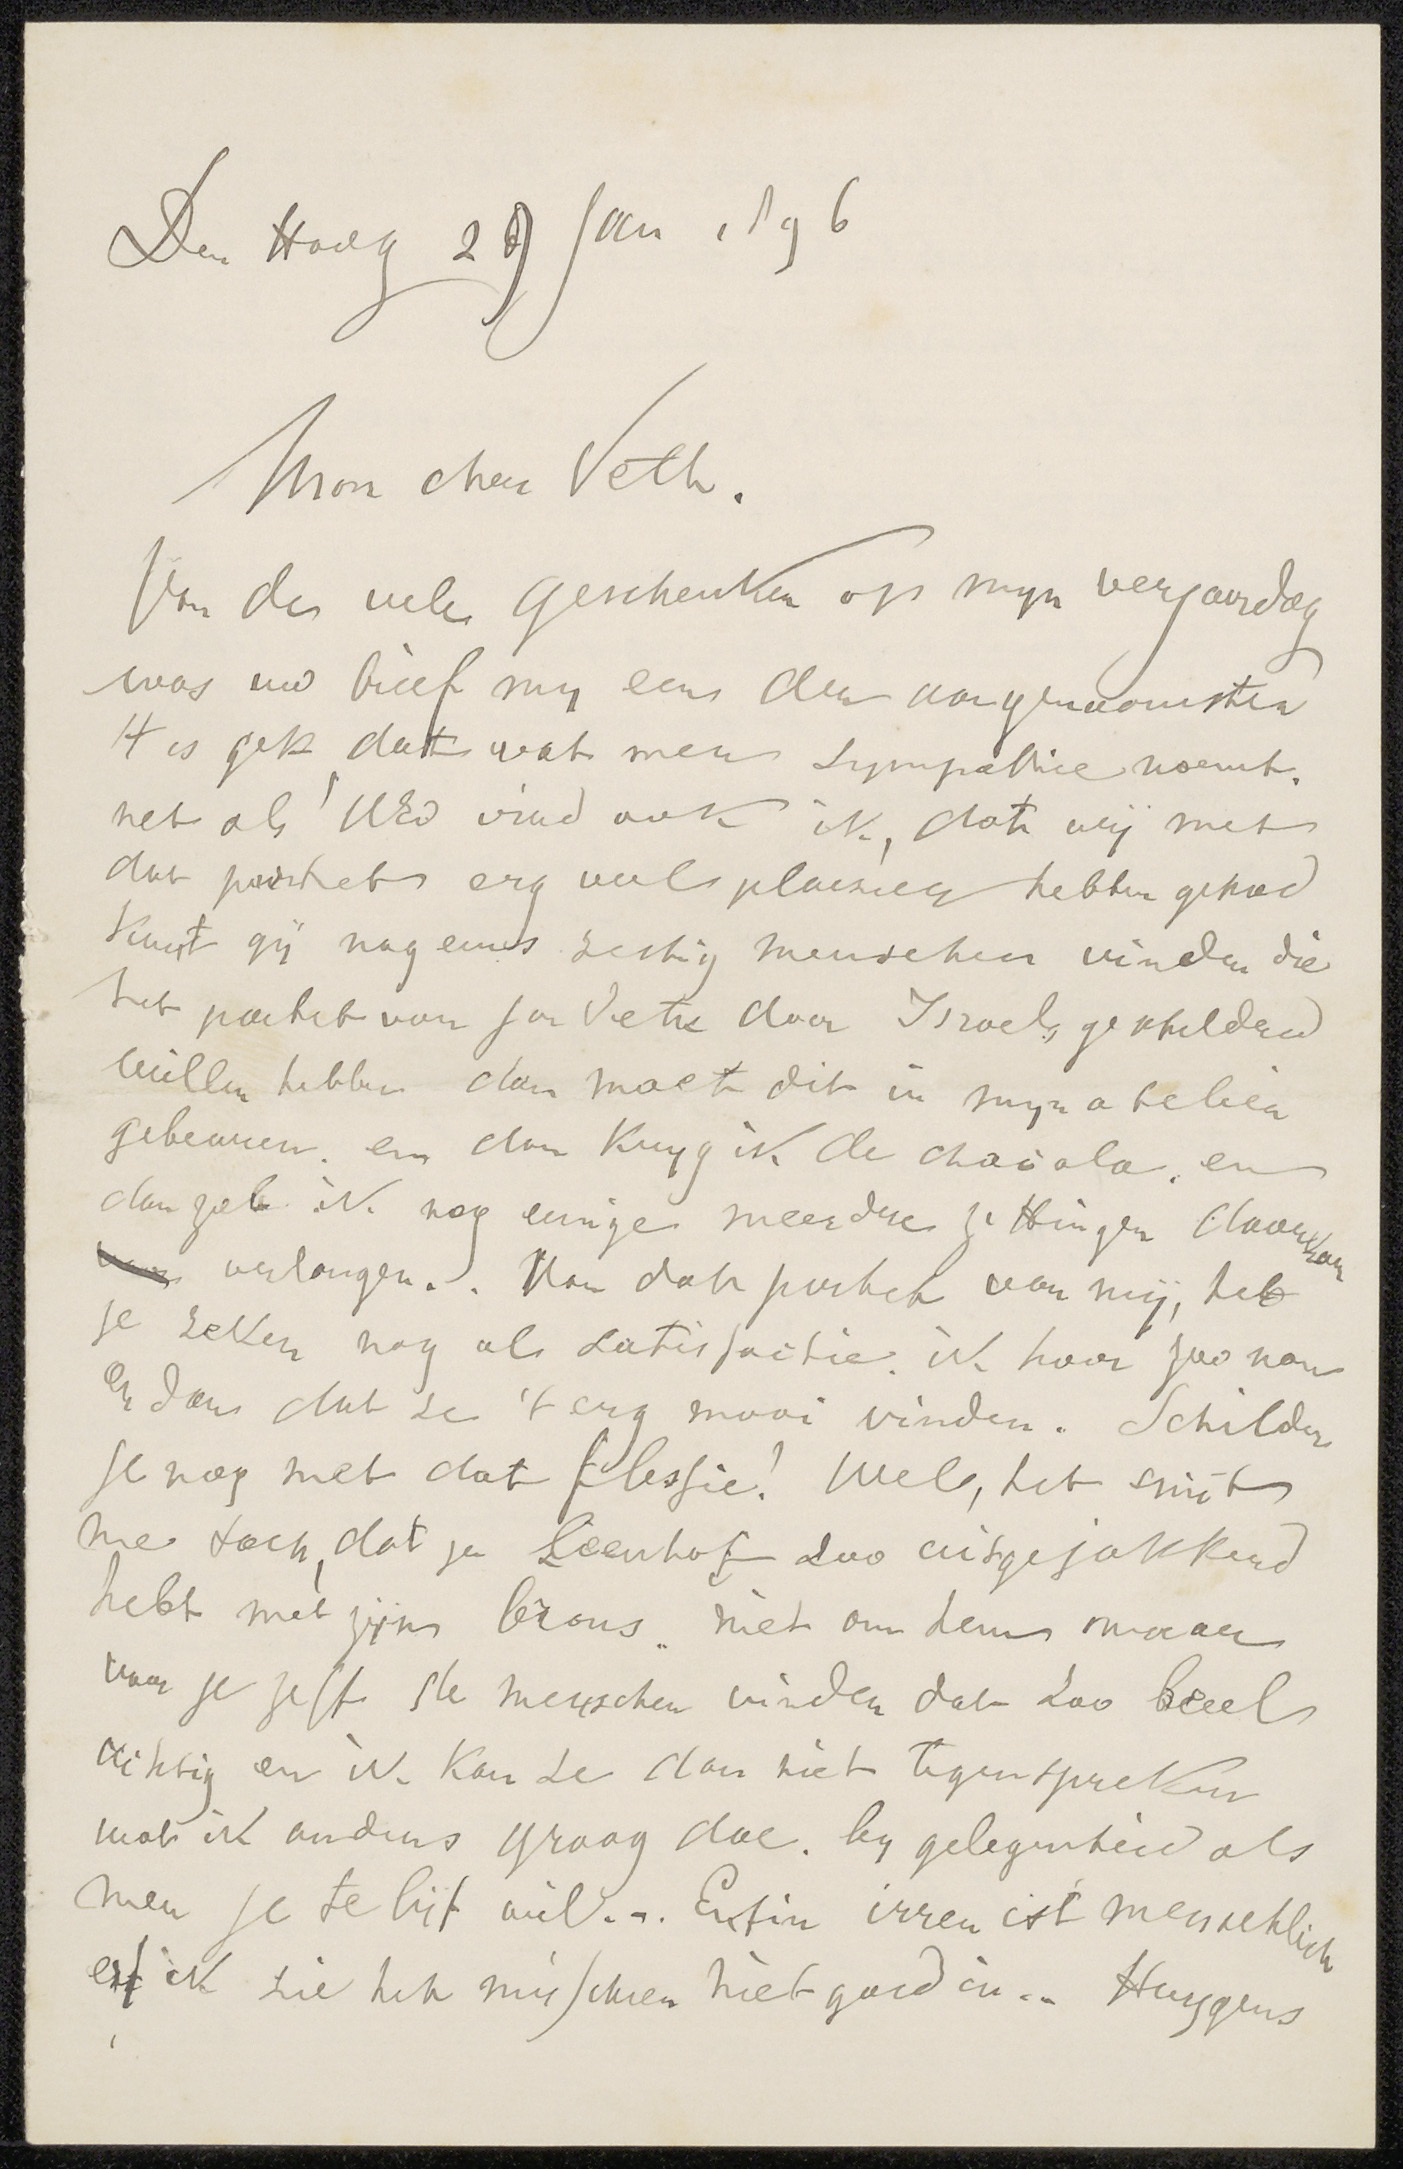 Den Haag 29 Jan 1896
Mon cher Veth.
Van de vele geschenken op myn verjaardag
was uw brief my een der aangenaamsten
't is gek, dat wat men sympathie noemt.
net als UEd vind ook ik, dat wij met
dat portret erg veel plaisier hebben gehad
kunt gij nog eens zestig menschen vinden die
het portret van Jan Veth door Israels geschilderd
willen hebben dan moet dit in myn atelier
gebeuren. en dan kryg ik de , en
dan zal ik nog eenige meerdere zittingen daarvan
verlangen.. Van dat portret van mij, heb
je zeker nog al satisfactie. ik hoor zoo van
dat ze 't erg mooi vinden. Schilder
je nog met dat flesje! Wel, het spijt
me toch, dat je Leenhof zoo uitgejakkerd
hebt met zijn brons. niet om hem maar
voor je zelf de menschen vinden dat zoo
en ik kan ze dan niet tegenspreken
wat ik anders graag doe. by gelegenheid als
men je te lijf wil... Enfin irren ist menschlich
en ik zie het misschien niet goed in.. Huygens